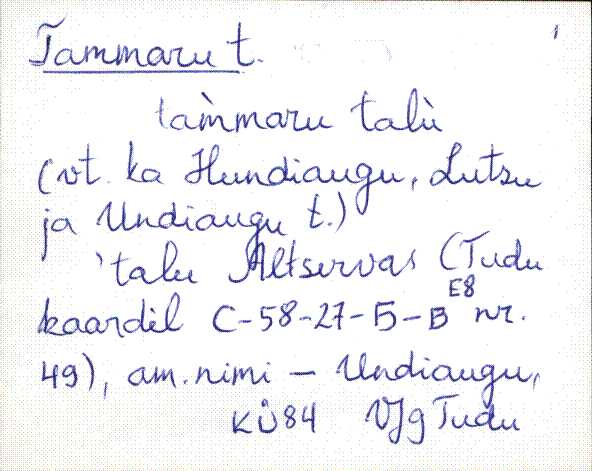 Tammaru t.
tam̀maru talù
(vt. ka Hundiaugu, Lutsu
ja Undiaugu t.)
'talu Altservas (Tudu
E8
kaardil C-58-27-Б-В nr.
49), am.nimi – Undiaugu,
KÜ84 VJg Tudu